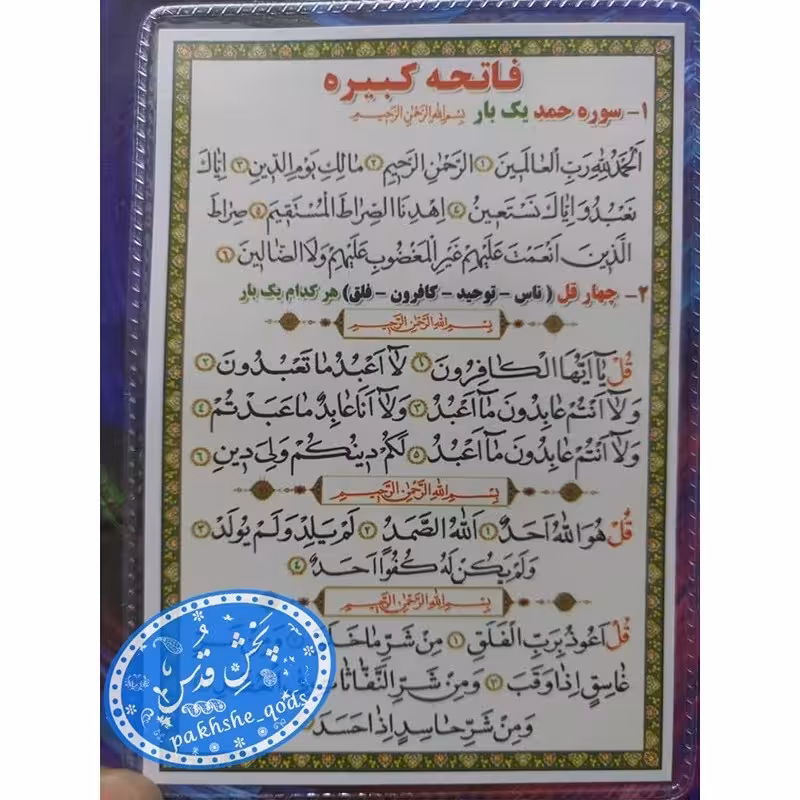 فاتحه کبیره
۱- سوره حمد یک بار بِسْمِ اللهِ الرَّحْمٰنِ الرَّحِیمِ
اَلْحَمْدُ لِلّٰهِ رَبِّ الْعٰالَمِینَ ۱ الرَّحْمٰنِ الرَّحِیمِ ۲ مٰالِکِ یَوْمِ الدِّینِ ۳ اِیّٰاکَ
نَعْبُدُ وَ اِیّٰاکَ نَسْتَعِینُ ۴ اِهْدِنَا الصِّرٰاطَ الْمُسْتَقِیمَ ۵ صِرٰاطَ
الَّذِینَ اَنْعَمْتَ عَلَیْهِمْ غَیْرِ الْمَغْضُوبِ عَلَیْهِمْ وَلَا الضّٰالِّینَ ۶
۲- چهار قل ( ناس - توحید - کافرون - فلق) هر کدام یک بار
بِسْمِ اللهِ الرَّحْمٰنِ الرَّحِیمِ
قُلْ یٰا اَیُّهَا الْکٰافِرُونَ ۱ لٰا اَعْبُدُ مٰا تَعْبُدُونَ ۲
وَ لٰا اَنْتُمْ عٰابِدُونَ مٰا اَعْبُدُ ۳ وَ لٰا اَنَا عٰابِدٌ مٰا عَبَدْتُمْ ۴
وَ لٰا اَنْتُمْ عٰابِدُونَ مٰا اَعْبُدُ ۵ لَکُمْ دِینُکُمْ وَلِیَ دِینِ ۶
بِسْمِ اللهِ الرَّحْمٰنِ الرَّحِیمِ
قُلْ هُوَ اللهُ اَحَدٌ ۱ اَللهُ الصَّمَدُ ۲ لَمْ یَلِدْ وَلَمْ یُولَدْ ۳
وَلَمْ یَکُنْ لَهُ کُفُوًا اَحَدٌ ۴
بِسْمِ اللهِ الرَّحْمٰنِ الرَّحِیمِ
قُلْ اَعُوذُ بِرَبِّ الْفَلَقِ ۱ مِنْ شَرِّ مٰا
غٰاسِقٍ اِذٰا وَقَبَ ۳ وَ مِنْ شَرِّ النَّفّٰاثٰاتِ
وَ مِنْ شَرِّ حٰاسِدٍ اِذٰا حَسَدَ
پخش قدس
pakhshe_qods